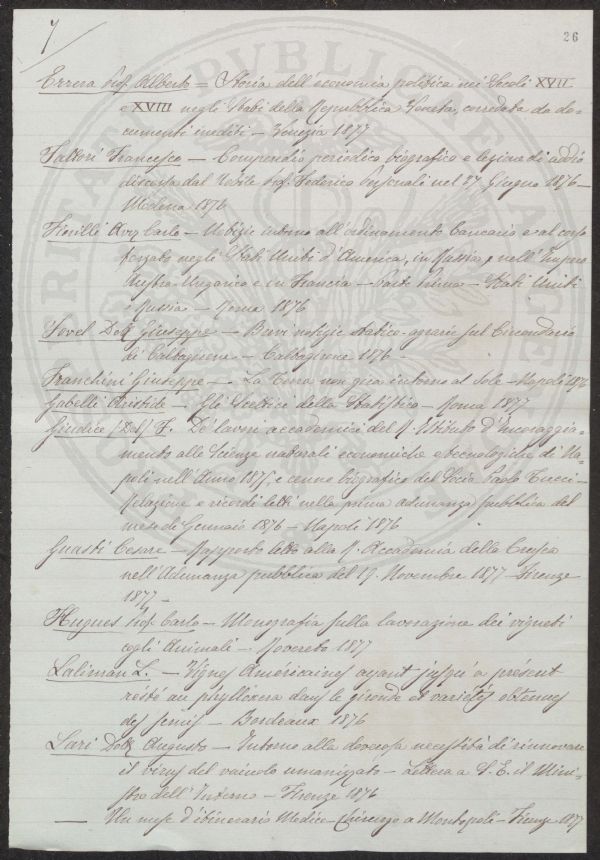 7
26
Errera Prof. Alberto = Storia dell'economia politica nei Secoli XVII
e XVIII negli Stati della Repubblica Veneta, corredata da do-
cumenti inediti - Venezia 1877
Fattori Francesco - Compendio periodico biografico e legione di addio
discorsa dal Nobile Prof. Federico nel 27 Giugno 1876 -
Modena 1876
Fiorilli Avv. Carlo - Notizie intorno all'ordinamento bancario e al corso
forzato negli Stati Uniti d'America, in Russia, nell'Impero
Austro-Ungarico e in Francia - Parte Prima - Stati Uniti
e Russia - Roma 1876
Fovel Dott. Giuseppe - Brevi notizie statico-agrarie sul Circondario
di Caltagirone - Caltagirone 1876 -
Franchini Giuseppe - La Terra non gira intorno al Sole - Napoli 1876
Gabelli Aristide - Gli Scettici della Statistica - Roma 1877
Giudice (Del) F. De' lavori accademici del R. Istituto d'Incoraggia-
mento alle Scienze naturali economiche e tecnologiche di Na-
poli nell'Anno 1875, e cenno biografico del Socio Paolo Tucci -
Relazione e ricordi letti nella prima adunanza pubblica del
mese di Gennaio 1876 - Napoli 1876
Guasti Cesare - Rapporto letto alla R. Accademia della Crusca
nell'Adunanza pubblica del 19 Novembre 1877 - Firenze
1877 -
Hugues Prof. Carlo - Monografia sulla lavorazione dei vigneti
cogli Animali - Rovereto 1877
Laliman L. - Vignes Américaines ayant jusqu'a présent
resté au phylloxera dans le gironde et varietés obtenues
des semis - Bordeaux 1876
Lari Dott. Augusto - Intorno alla doverosa necessità di rinnovare
il virus del vaiuolo umanizzato - Lettera a S. E. il Mini-
stro dell'Interno - Firenze 1876
— Un mese d'itinerario Medico-Chirurgo a Montopoli - Firenze 1877